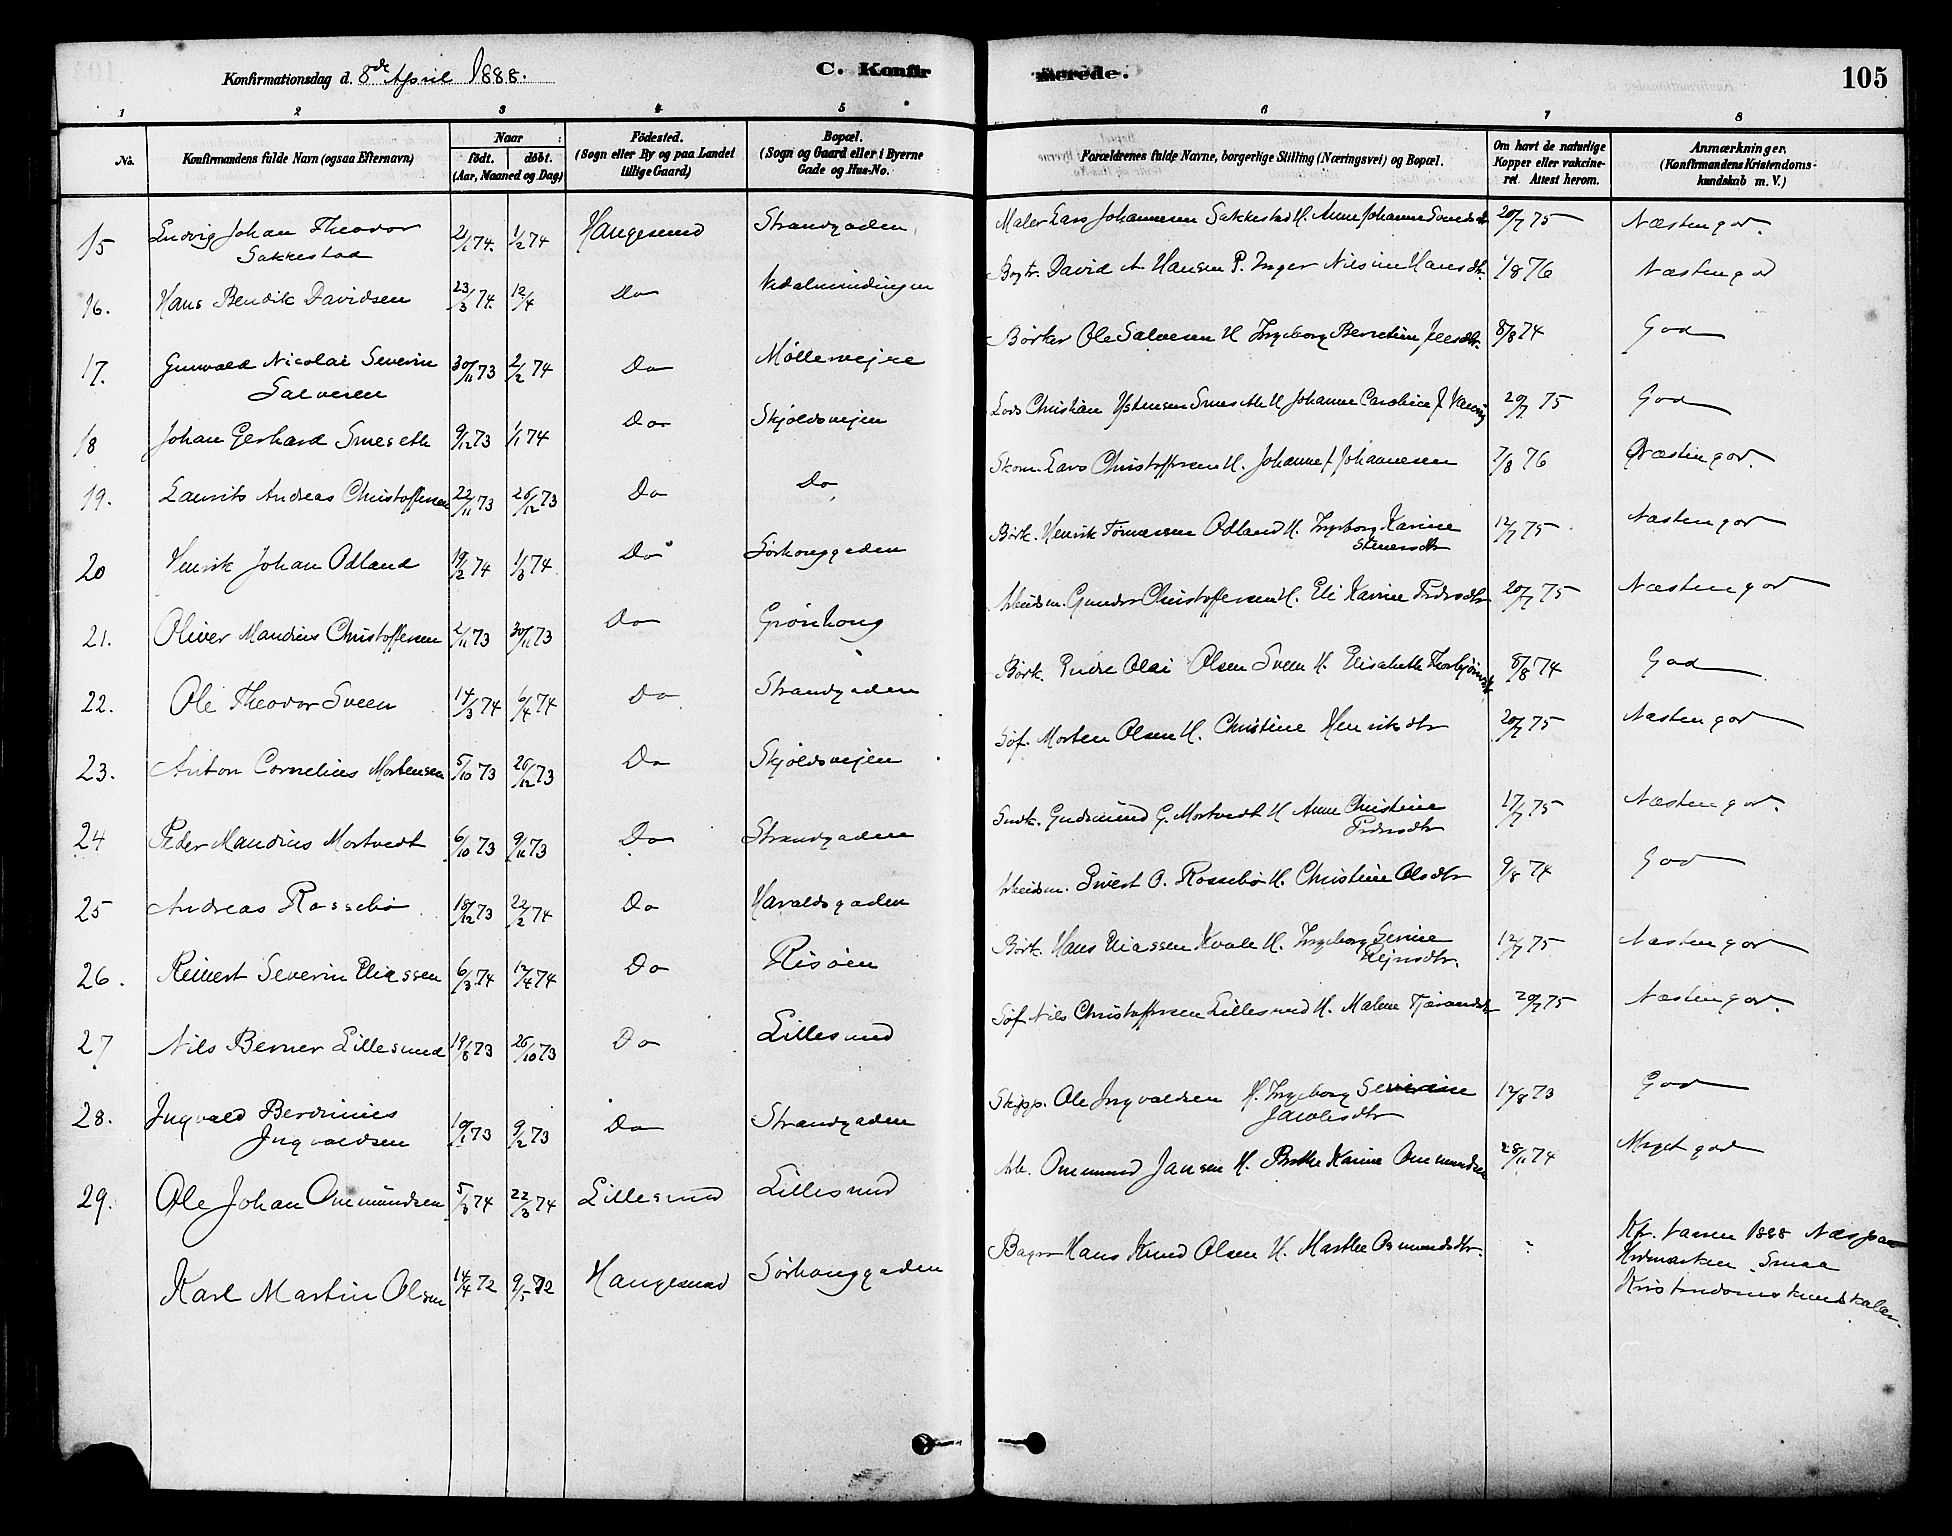 Konfirmationsdag d. 8de April 1888.
C. Konfir
merede.
105
1 2 3 4 5 6 7 8
No.
Konfirmandens fulde Navn (ogsaa Efternavn)
Naar
födt. döbt.
(Aar, Maaned og Dag)
Födested.
(Sogn eller By og paa Landet
tillige Gaard)
Bopæl.
(Sogn og Gaard eller i Byerne
Gade og Hus-No.
Forældrenes fulde Navne, borgerlige Stilling (Næringsvei) og Bopæl.
Om havt de naturlige
Kopper eller vakcine-
ret. Attest herom.
Anmærkninger.
(Konfirmandens Kristendoms-
kundskab m. V.)
15 Ludvig Johan Theodor 21/1 74. 1/2 74 Haugesund Strandgaden Maler Lars Johannesen Sakkestad H. Anne Johanne 20/7 75 Næsten god.
Sakkestad
16. Hans Bendik Davidsen 23/3 74. 12/4 Do David A Hansen P. Inger Nilsine Hansdtr. 1/8 76 Næsten god
17. Gunvald Nicolai Severin 30/11 73 2/2 74 Do Möllervejen Börker Ole Salvesen H Ingeborg 8/8 74 God
Salvesen
18 Johan Gerhard 9/12 73 1/1 74 Do Skjoldsvejen Lods Christian H Johanne Caroline 20/7 75 God
19. Laurits Andreas Christoffersen 22/11 73 26/12 73 Do Do Skom. Lars Christoffersen H. Johanne J. Johannesen 7/8 76 Næsten god.
20 Henrik Johan Odland 19/2 74 1/3 74. Do Sörhauggaden Börk. Henrik Odland H. Ingeborg Karine 12/7 75 Næsten god
21. Oliver Mandius Christoffersen 2/11 73 30/11 73 Do Grönhaug Arbeidsm. Gunder Christoffersen H. Eli Karine Pedersdtr 20/7 75 Næsten god
22. Ole Theodor Sveen 14/3 74 6/4 74 Do Strandgaden Börk. Endre Olai Olsen Sveen H. Elisabeth 8/8 74 God
23. Anton Cornelius Mortensen 5/10 73 26/12 73 Do Skjoldsvejen Söf. Morten Olsen H. Christine Henriksdtr 20/7 75 Næsten god
24 Peder Mandius Mortvedt 6/10 73 9/11 73 Do Strandgaden Snedk. Gudmund G. Mortvedt H Anne Christine 17/7 75 Næsten god.
Pedersdtr
25 Andreas Rossebö 18/12 73 22/2 74 Do Haraldsgaden Arbeidsm. Sivert O. Rossebö H. Christine Olsdtr 9/8 74 God
26. Reinert Severin Eliassen 6/3 74 12/4 74 Do Risöen Börk. Hans Eliassen Kvale H. Ingeborg Serine 12/7 75 Næsten god
27 Nils Berner Lillesund 19/8 73 26/10 73 Do Lillesund Söf Nils Christoffersen Lillesund H. Malene 20/7 75 Næsten god.
28. Ingvald Berdinius 19/1 73 9/2 73 Do Strandgaden Skipp. Ole Ingvaldsen H. Ingeborg Severine 12/8 73 God
Ingvaldsen Jacobsdtr
29. Ole Johan Ommundsen 5/3 74 22/3 74 Lillesund Lillesund Arb. Ommund Jansen H. Berthe Karine Ommundsen 28/11 74 Meget god
Karl Martin Olsen 14/4 72 9/5 72 Haugesund Sörhauggaden Bager Hans Knud Olsen H. Marthe Osmundsdtr. Kfr. 1888
Smaa
Kristendomskundskaber.